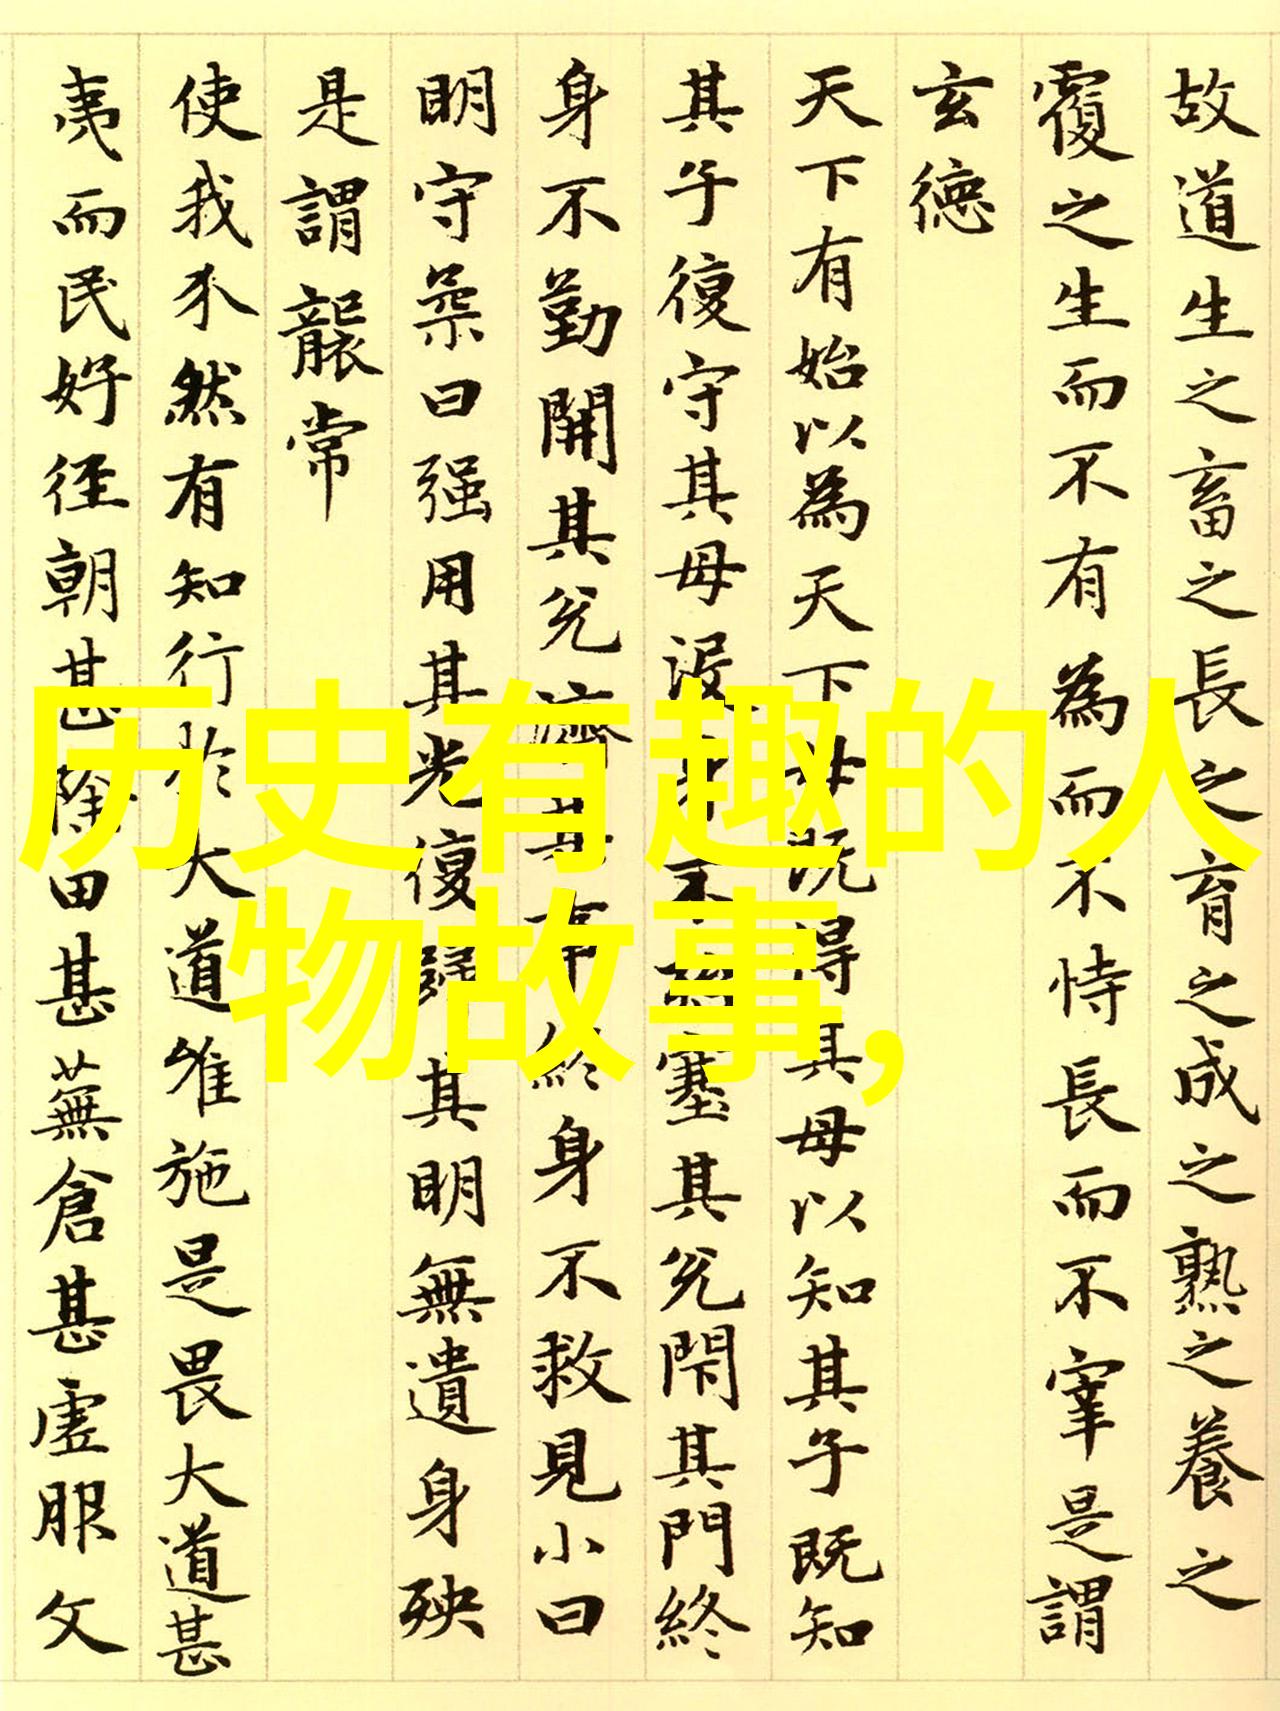 故道生之畜之長之育之成之熟之養之
覆之生而不有為而不恃長而不宰是謂
玄德
天下有始以為天下母既得其母以知其子既知
其子復守其母沒身不殆塞其兌閇其門終
身不勤開其兌濟其事終身不救見小曰
明守柔曰强用其光復歸其明無遺身殃
是謂襲常
使我介然有知行於大道唯施是畏大道甚
夷而民好徑朝甚除田甚蕪倉甚虛服文
历史有趣的人
物故事,